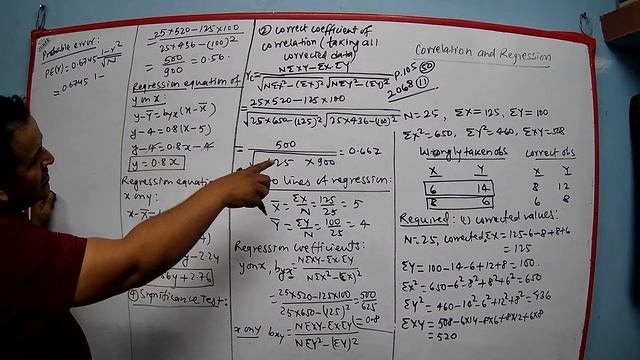 Probable error:
PE(r) = 0.6745 1-r²/√N
= 0.6745 1-
25×520-125×100
25×436-(100)²
= 500/900 = 0.56.
Regression equation of
y on x:
y-ȳ = byx(x-x̄)
y-4 = 0.8(x-5)
y-4 = 0.8x-4
y = 0.8x
Regression equation
x on y:
x-x̄
y-2.24
56y+2.76
④ Significance Test:
② correct coefficient of
correlation (taking all
corrected data)
NΣXY-ΣXΣY
√NΣX²-(ΣX)² √NΣY²-(ΣY)²
= 25×520-125×100
√25×650-(125)² √25×436-(100)²
= 500
25 × 900 = 0.667
lines of regression:
X̄ = ΣX/N = 125/25 = 5
Ȳ = ΣY/N = 100/25 = 4
Regression coefficients:
y on x, byx = NΣXY-ΣXΣY/NΣX²-(ΣX)²
= 25×520-125×100/25×650-(125)² = 500/625
= 0.8
x on y bxy = NΣXY-ΣXΣY/NΣY²-(ΣY)²
Correlation and Regression
p.105
2068 ⑪
N=25, ΣX=125, ΣY=100
ΣX²=650, ΣY²=460, ΣXY=508
Wrongly taken obs correct obs
X Y X Y
6 14 8 12
8 6 6 8
Required: (1) corrected values:
N=25, corrected, ΣX = 125-6-8+8+6
= 125
ΣY = 100-14-6+12+8 = 100.
ΣX² = 650-6²-8²+8²+6² = 650
ΣY² = 460-14²-6²+12²+8² = 436
ΣXY = 508-6×14-8×6+8×12+6×8
= 520